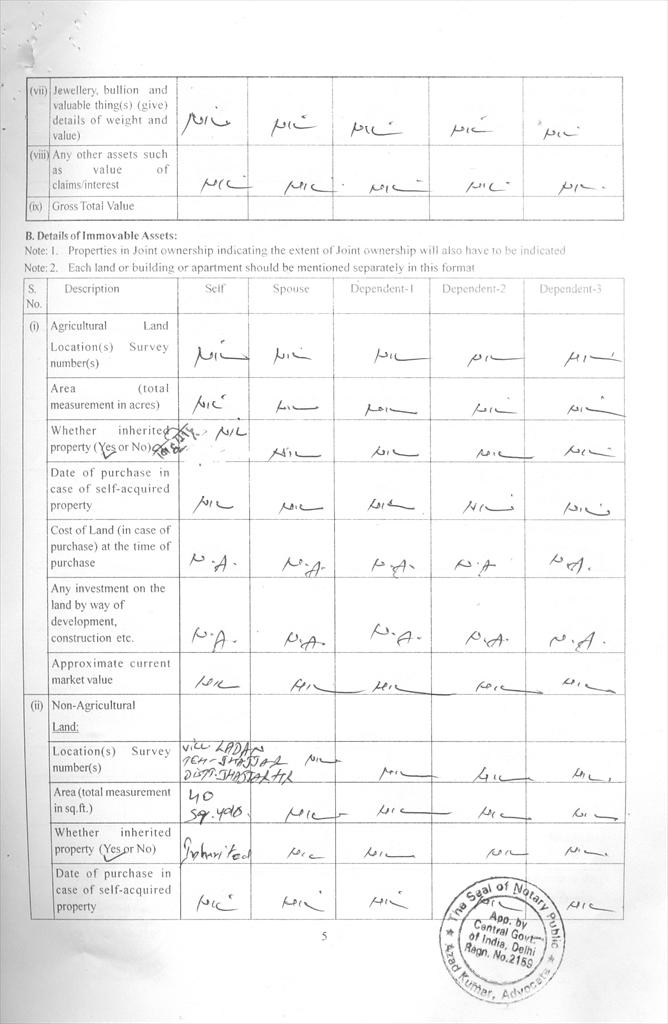 (vii) Jewellery, bullion and
valuable thing(s) (give)
details of weight and
value)
NIL NIL NIL NIL NIL
(viii) Any other assets such
as value of
claims/interest
NIL NIL NIL NIL NIL
(ix) Gross Total Value
B. Details of Immovable Assets:
Note: 1. Properties in Joint ownership indicating the extent of Joint ownership will also have to be indicated
Note: 2. Each land or building or apartment should be mentioned separately in this format
S. No. Description Self Spouse Dependent-1 Dependent-2 Dependent-3
(i) Agricultural Land
Location(s) Survey
number(s)
NIL NIL NIL NIL NIL
Area (total
measurement in acres)
NIL NIL NIL NIL NIL
Whether inherited
property (Yes or No)
NIL NIL NIL NIL NIL
Date of purchase in
case of self-acquired
property
NIL NIL NIL NIL NIL
Cost of Land (in case of
purchase) at the time of
purchase
N.A. N.A. N.A. N.A N.A.
Any investment on the
land by way of
development,
construction etc.
N.A. N.A. N.A. N.A. N.A.
Approximate current
market value
NIL NIL NIL NIL NIL
(ii) Non-Agricultural
Land:
Location(s) Survey
number(s)
VILL LADAN
TEH-JHAJJAR
DISTT.JHAJJAR HR
NIL NIL NIL NIL
Area (total measurement
in sq.ft.)
40
Sq.yds.
NIL NIL NIL NIL
Whether inherited
property (Yes or No)
Inherited NIL NIL NIL NIL
Date of purchase in
case of self-acquired
property
NIL NIL NIL NIL NIL
5
The Seal of Notary Public
App. by
Central Govt.
of India, Delhi
Regn. No.2159
Azad Kumar, Advocate